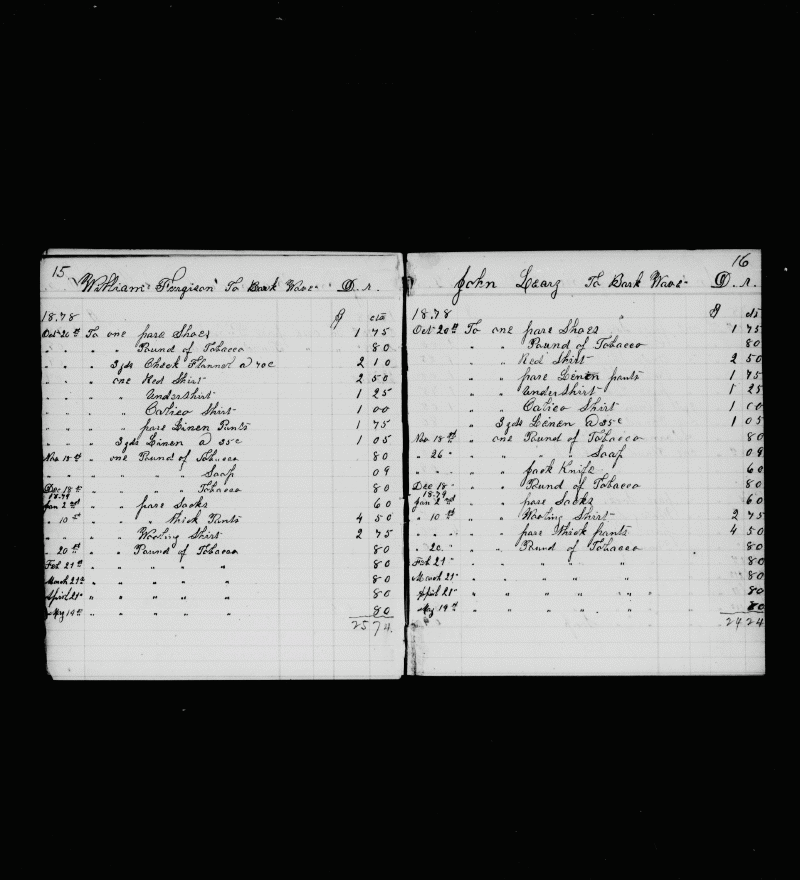 15
William Fergison To Bark Wave D.r.
18.78 $ cts
Oct 20th To one pare Shoes 1 75
" " " Pound of Tobacco 80
" " 3 yds Check Flannel a 70c 2 10
" " one Red Shirt 2 50
" " " Undershirt 1 25
" " " Calico Shirt 1 00
" " " pare Linen Pants 1 75
" " 3 yds Linen a 35c 1 05
Nov 18th " one Pound of Tobacco 80
" " " " " Soap 09
Dec 18th " " " " Tobacco 80
18.79
Jan 2nd " " pare Socks 60
" 10th " " " thick Pants 4 50
" " " Wooling Shirt 2 75
" 20th " " Pound of Tobacco 80
Feb 21st " " " " " 80
March 21st " " " " " 80
April 21st " " " " " 80
May 19th " " " " " 80
25 74.
16
John Leary To Bark Wave D.r.
18.78 $ cts
Oct 20th To one pare Shoes 1 75
" " Pound of Tobacco 80
" " Red Shirt 2 50
" " pare Linen pants 1 75
" " Undershirt 1 25
" " Calico Shirt 1 00
" 3 yds Linen a 35c 1 05
Nov 18th " one Pound of Tobacco 80
" 26 " " " " " Soap 09
" " " " Jack Knife 60
Dec 18 " " " Pound of Tobacco 80
18.79
Jan 2nd " " pare Socks 60
" 10th " " Wooling Shirt 2 75
" " " " pare thick pants 4 50
" 20 " " " Pound of Tobacco 80
Feb 21 " " " " " 80
March 21 " " " " " 80
April 21 " " " " " 80
May 19th " " " " " 80
24 24